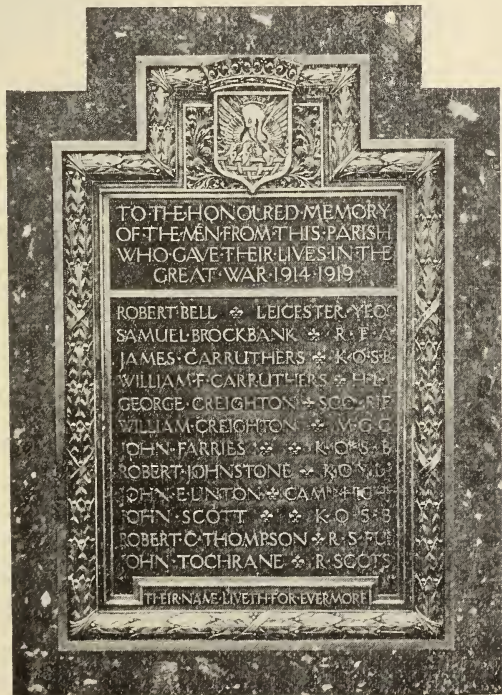 TO·THE·HONOURED·MEMORY
OF·THE·MEN·FROM·THIS·PARISH
WHO·GAVE·THEIR·LIVES·IN·THE
GREAT·WAR·1914·1919
ROBERT·BELL LEICESTER·YEO
SAMUEL·BROCKBANK R·F·A
JAMES·CARRUTHERS K·O·S·B
WILLIAM·F·CARRUTHERS H·L·I
GEORGE·CREIGHTON
WILLIAM·CREIGHTON M·G·C
JOHN·FARRIES K·O·S·B
ROBERT·JOHNSTONE
JOHN·E·LINTON
JOHN·SCOTT K·O·S·B
ROBERT·C·THOMPSON R·S·FUS
JOHN·TOCHRANE R·SCOTS
THEIR·NAME·LIVETH·FOR·EVERMORE